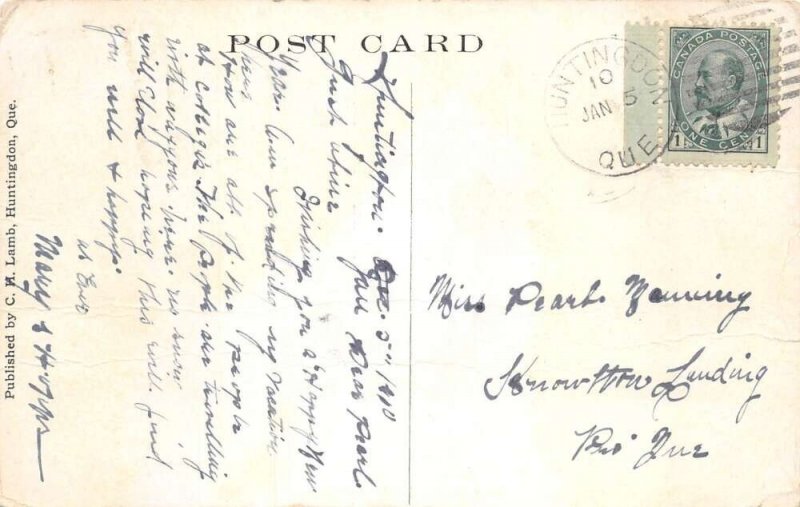 POST CARD
Huntingdon. Que.
Jan 5" 1910
Dear Pearl.
Just a line
Wishing you a Happy New
Year. Am spending my vacation
here
How are all of the people
at college. The people are
here.
will close hoping this will find
you well & happy.
as Ever
Mary
Published by C. H. Lamb, Huntingdon, Que.
HUNTINGDON
10
JAN 5
QUE
CANADA POSTAGE
1 ONE CENT 1
Miss Pearl. Manning
Knowlton Landing
Que